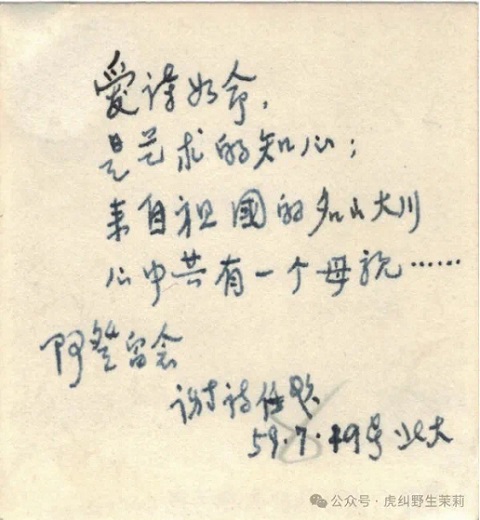 愛诗如命，
是艺术的知心；
来自祖國的名山大川
心中共有一个母親……
阿留念
谢
59.7.19号北大
公众号·虎纠野生茉莉